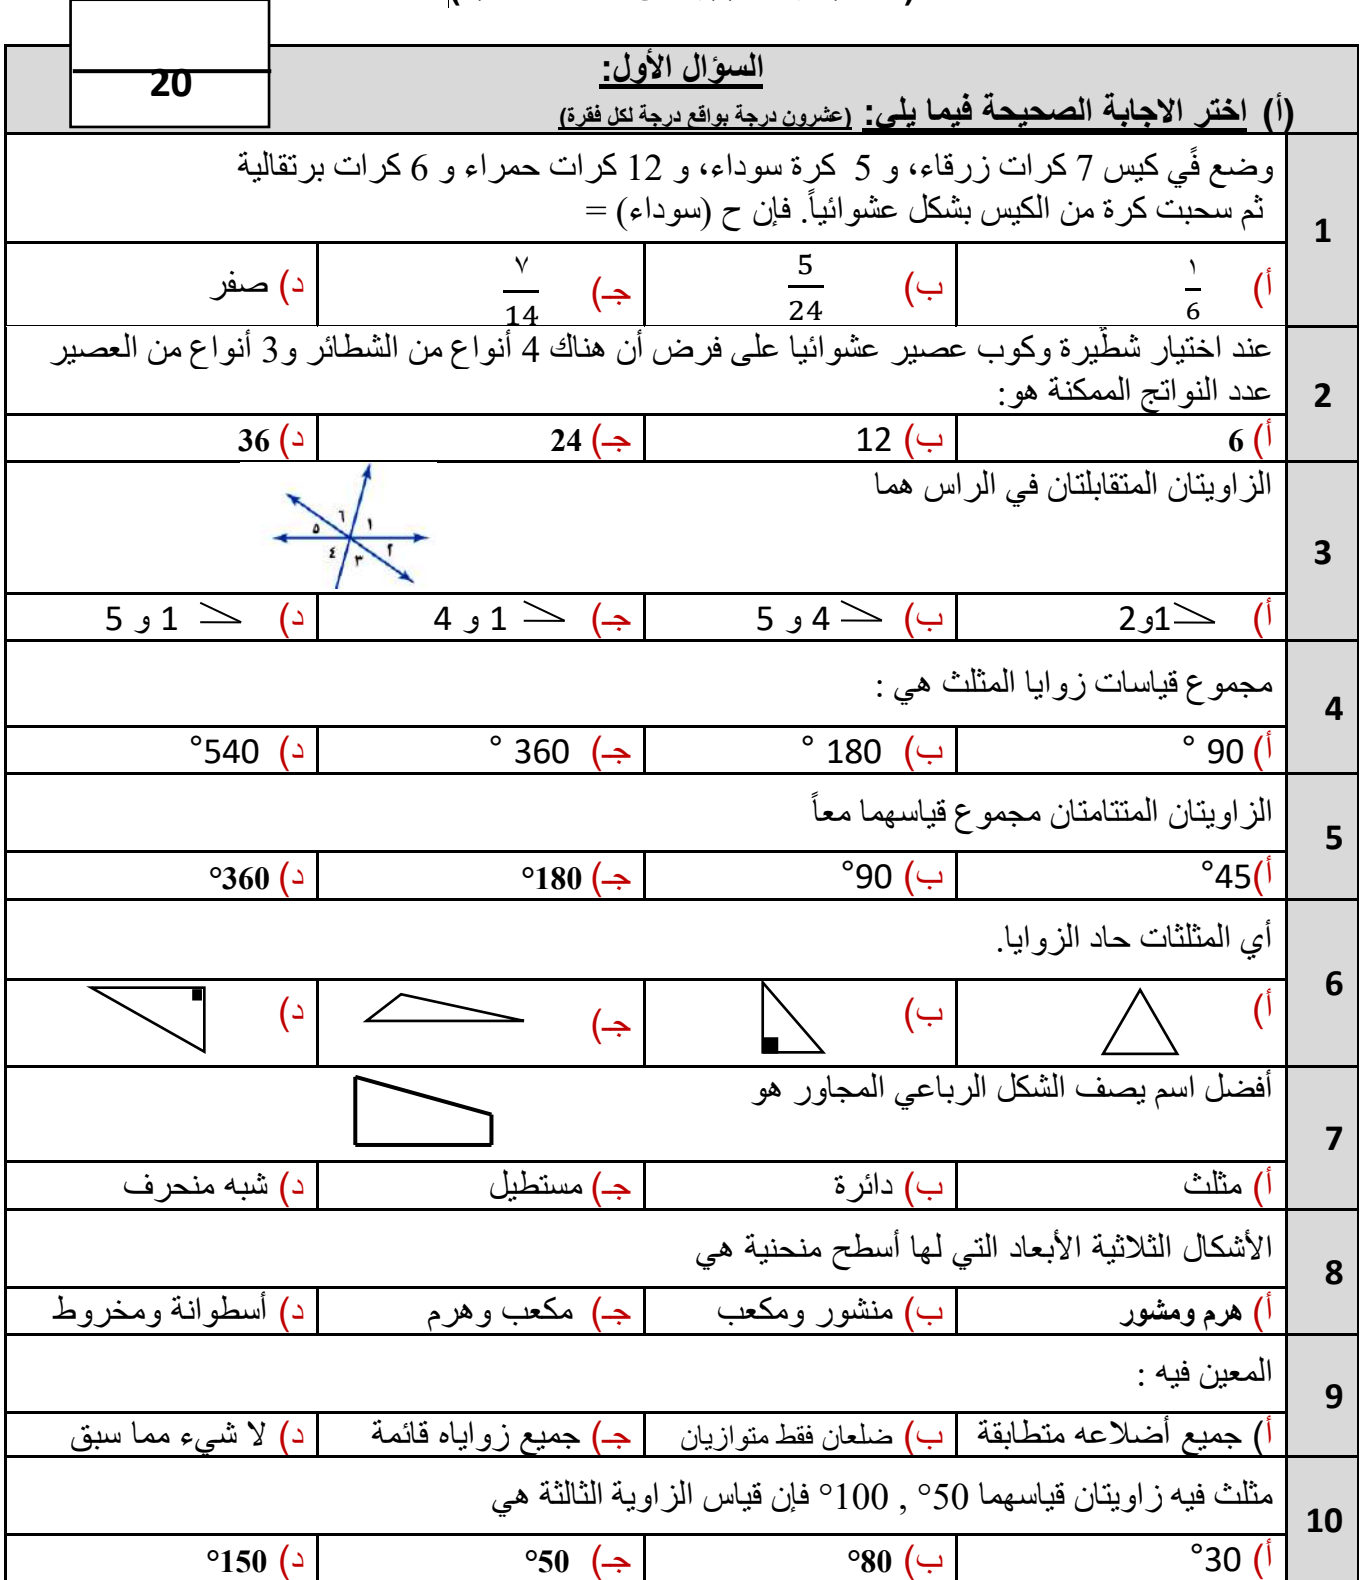 20
السؤال الأول:
(أ) اختر الاجابة الصحيحة فيما يلي: (عشرون درجة بواقع درجة لكل فقرة)
1
وضع في كيس 7 كرات زرقاء، و 5 كرة سوداء، و 12 كرات حمراء و 6 كرات برتقالية
ثم سحبت كرة من الكيس بشكل عشوائياً. فإن ح (سوداء) =
أ) ١/6 ب) 5/24 جـ) ٧/14 د) صفر
2
عند اختيار شطيرة وكوب عصير عشوائيا على فرض أن هناك 4 أنواع من الشطائر و3 أنواع من العصير
عدد النواتج الممكنة هو:
أ) 6 ب) 12 جـ) 24 د) 36
3
الزاويتان المتقابلتان في الراس هما
١ ٢ ٣ ٤ ٥ ٦
أ) 1و2 ب) 4 و 5 جـ) 1 و 4 د) 1 و 5
4
مجموع قياسات زوايا المثلث هي :
أ) 90 ° ب) 180 ° جـ) 360 ° د) 540°
5
الزاويتان المتتامتان مجموع قياسهما معاً
أ)45° ب) 90° جـ) 180° د) 360°
6
أي المثلثات حاد الزوايا.
أ) ب) جـ) د)
7
أفضل اسم يصف الشكل الرباعي المجاور هو
أ) مثلث ب) دائرة جـ) مستطيل د) شبه منحرف
8
الأشكال الثلاثية الأبعاد التي لها أسطح منحنية هي
أ) هرم ومشور ب) منشور ومكعب جـ) مكعب وهرم د) أسطوانة ومخروط
9
المعين فيه :
أ) جميع أضلاعه متطابقة ب) ضلعان فقط متوازيان جـ) جميع زواياه قائمة د) لا شيء مما سبق
10
مثلث فيه زاويتان قياسهما 50° , 100° فإن قياس الزاوية الثالثة هي
أ) 30° ب) 80° جـ) 50° د) 150°